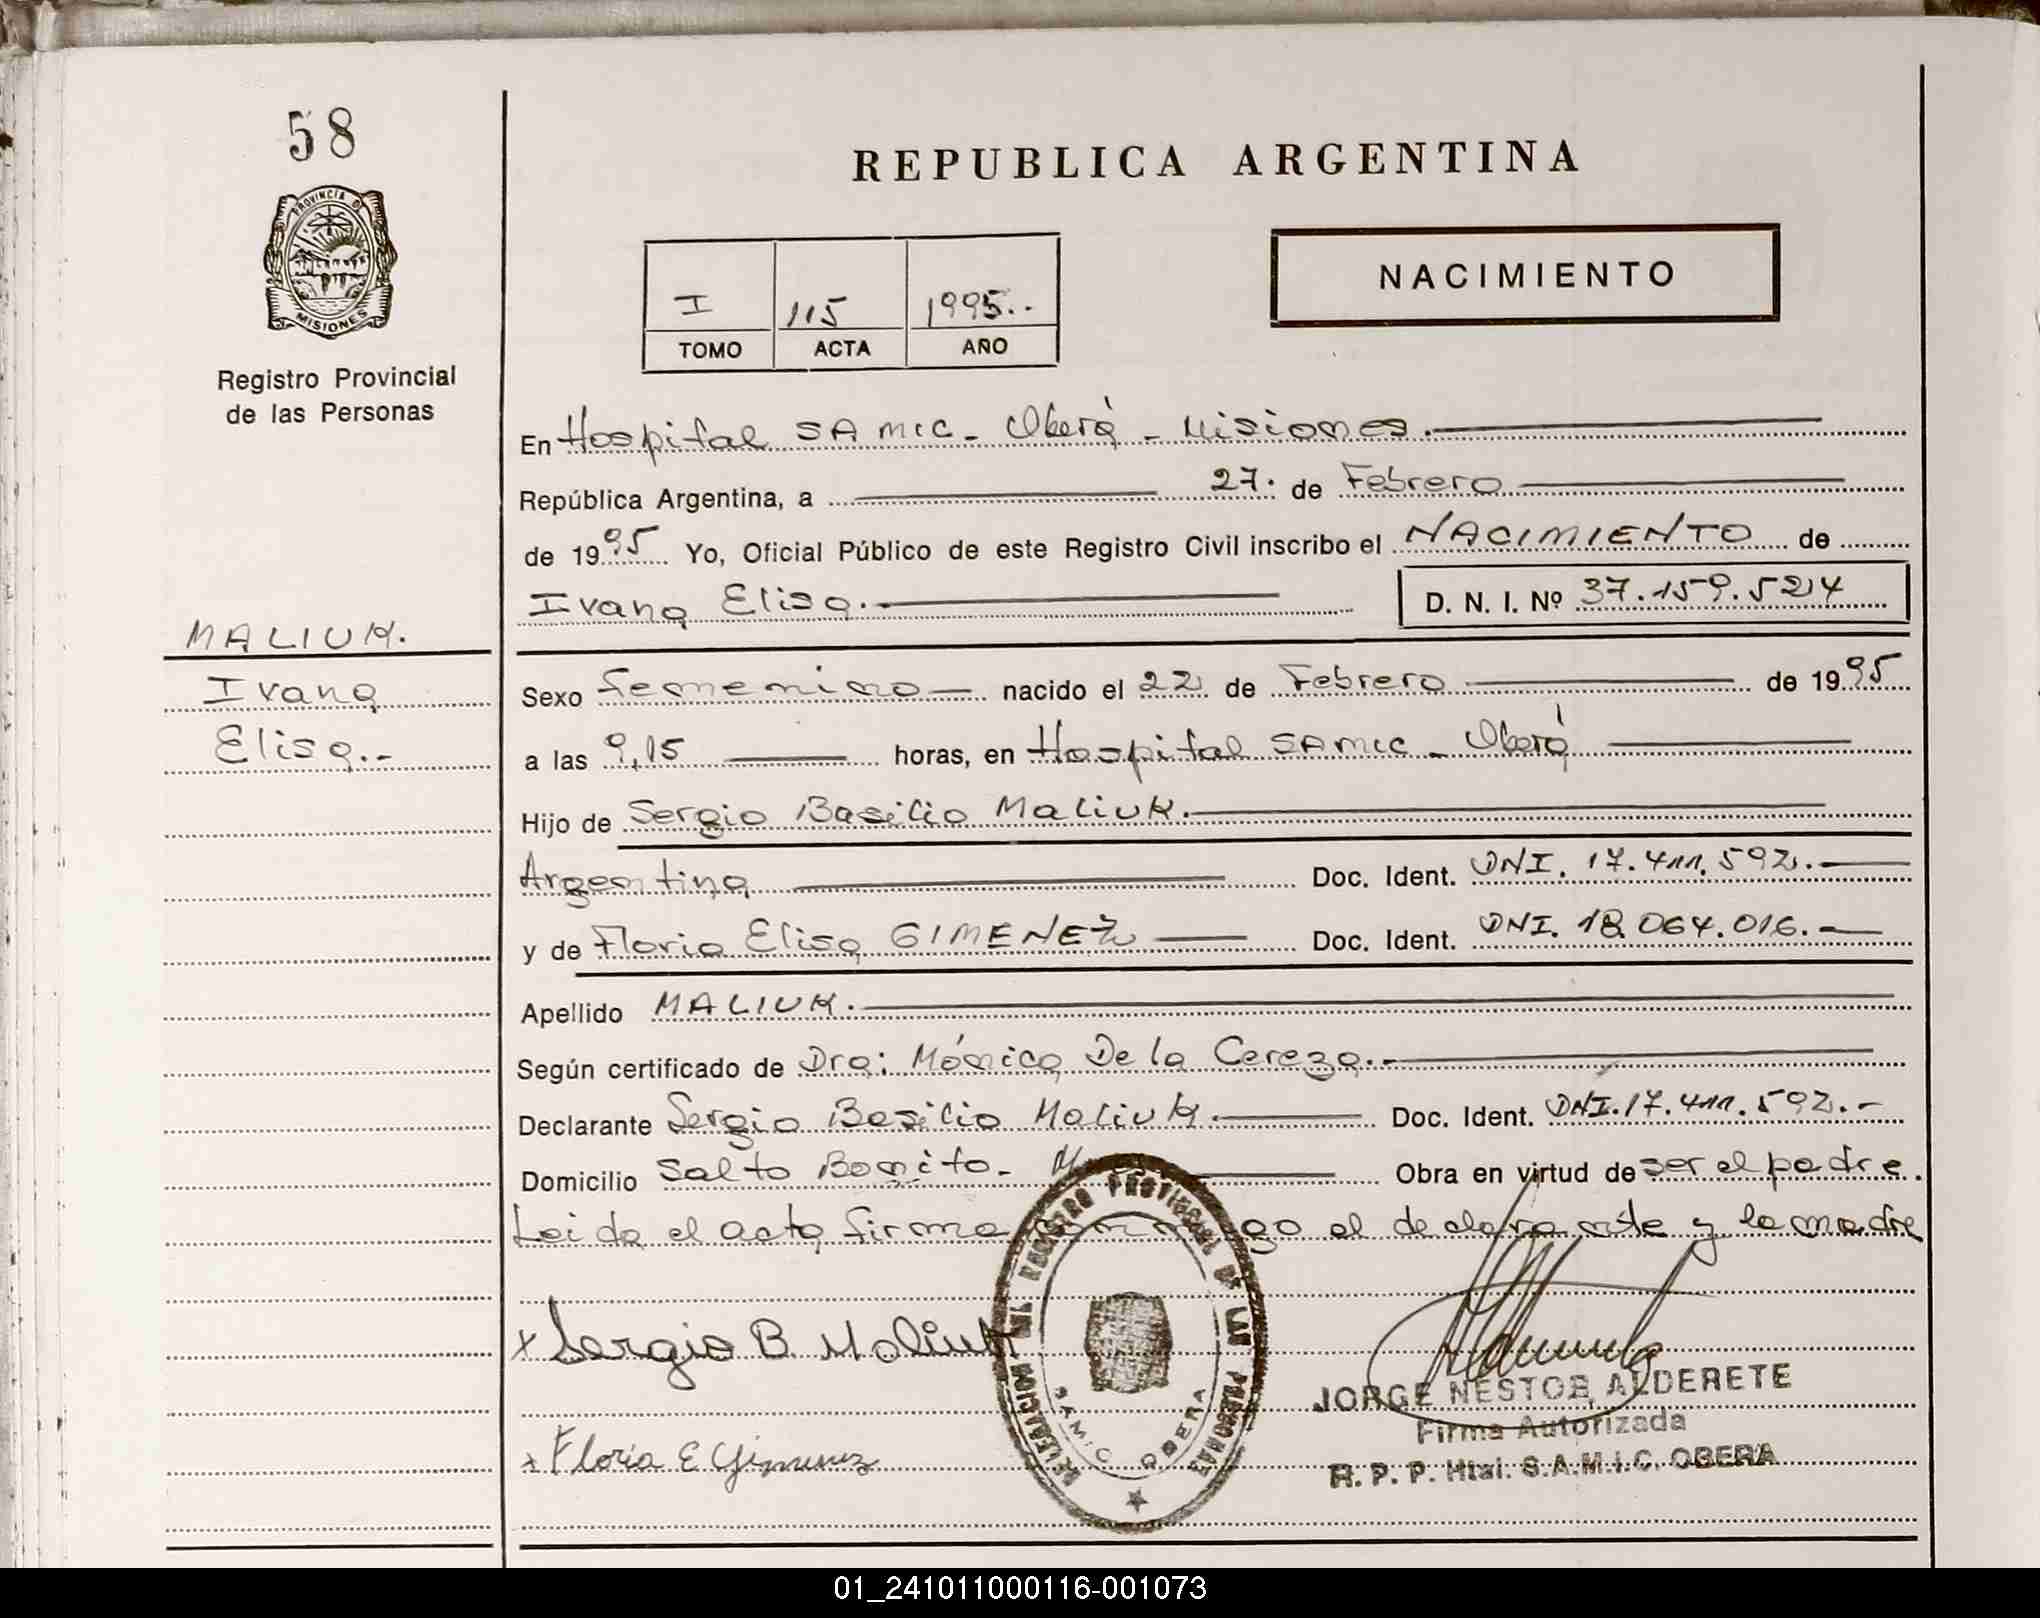 58
PROVINCIA DE
MISIONES
Registro Provincial
de las Personas
REPUBLICA ARGENTINA
NACIMIENTO
I 115 1995..
TOMO ACTA AÑO
En Hospital SAMIC - Oberá - Misiones.
República Argentina, a 27. de Febrero
de 1995 Yo, Oficial Público de este Registro Civil inscribo el NACIMIENTO de
Ivana Elisa.- D. N. I. Nº 37.159.524
MALIUK.
Ivana
Elisa.-
Sexo femenino nacido el 22 de Febrero de 1995
a las 9,15 horas, en Hospital SAMIC - Oberá
Hijo de Sergio Basilio Maliuk.
Argentina Doc. Ident. DNI. 17.411.592.-
y de Floria Elisa GIMENEZ Doc. Ident. DNI. 18.064.016.-
Apellido MALIUK.
Según certificado de Dra: Mónica De la Cereza.-
Declarante Sergio Basilio Maliuk. Doc. Ident. DNI.17.411.592.-
Domicilio Salto Bonito- Obra en virtud de ser el padre.
Leida el acta firma conmigo el declarante y la madre
x Sergio B. Maliuk
x Floria E Gimenez
DELEGACION DEL REGISTRO PROVINCIAL DE LAS PERSONAS
SAMIC OBERA
JORGE NESTOR ALDERETE
Firma Autorizada
R. P. P. Htal. S.A.M.I.C. OBERA
01_241011000116-001073